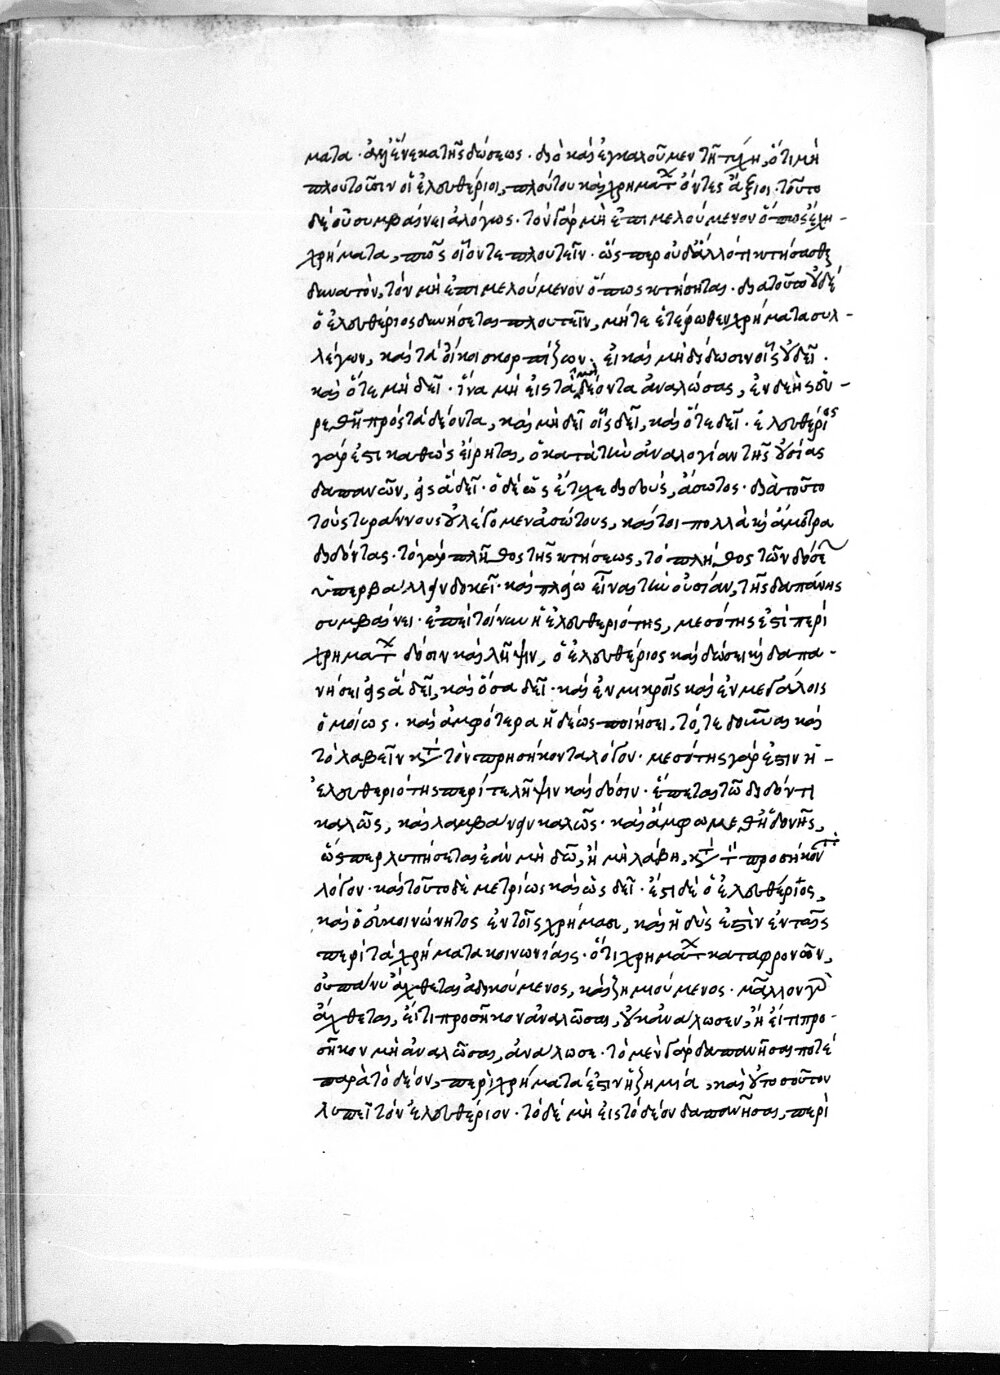 ματα· ἀλλ' ἕνεκα τῆς δόσεως· διὸ καὶ ἐγκαλοῦμεν τῇ τύχῃ, ὅτι μὴ
πλουτοῦσιν οἱ ἐλευθέριοι, πλούτου καὶ χρημάτων ὄντες ἄξιοι· τοῦτο
δὲ οὐ συμβαίνει ἀλόγως· τὸν γὰρ μὴ ἐπιμελούμενον ὅπως ἔχῃ
χρήματα, πῶς οἷόν τε πλουτεῖν· ὥσπερ οὐδ' ἄλλό τι κτήσασθαι
δυνατὸν, τὸν μὴ ἐπιμελούμενον ὅπως κτήσηται· διὰ τοῦτο οὐδὲ
ὁ ἐλευθέριος δυνήσεται πλουτεῖν, μήτε ἑτέρωθεν χρήματα συλ-
λέγων, καὶ τὰ οἴκοι σκορπίζων· εἰ καὶ μὴ δίδωσιν οἷς οὐ δεῖ·
καὶ ὅτε μὴ δεῖ· ἵνα μὴ εἰς τὰ μὴ δέοντα ἀναλώσας, ἐνδεὴς εὑ-
ρεθῇ πρὸς τὰ δέοντα, καὶ μὴ δεῖ οἷς δεῖ, καὶ ὅτε δεῖ· ἐλευθέριος
γάρ ἐστι καθὼς εἴρηται, ὁ κατὰ τὴν ἀναλογίαν τῆς οὐσίας
δαπανῶν, εἰς ἃ δεῖ· ὁ δὲ ὡς ἔτυχε διδοὺς, ἄσωτος· διὰ τοῦτο
τοὺς τυράννους οὐ λέγομεν ἀσώτους, καίτοι πολλὰ καὶ ἄμετρα
διδόντας· τὸ γὰρ πλῆθος τῆς κτήσεως, τὸ πλῆθος τῶν δόσεων
ὑπερβάλλειν δοκεῖ· καὶ πλείω εἶναι τὴν οὐσίαν, τῆς δαπάνης
συμβαίνει· ἐπεὶ τοίνυν ἡ ἐλευθεριότης, μεσότης ἐστὶ περὶ
χρημάτων δόσιν καὶ λῆψιν, ὁ ἐλευθέριος καὶ δώσει καὶ δαπα-
νήσει εἰς ἃ δεῖ, καὶ ὅσα δεῖ· καὶ ἐν μικροῖς καὶ ἐν μεγάλοις
ὁμοίως· καὶ ἀμφότερα ἡδέως ποιήσει, τό, τε δοῦναι καὶ
τὸ λαβεῖν κατὰ τὸν προσήκοντα λόγον· μεσότης γάρ ἐστιν ἡ
ἐλευθεριότης περί τε λῆψιν καὶ δόσιν· ἕπεται τῷ διδόντι
καλῶς, καὶ λαμβάνειν καλῶς· καὶ ἄμφω μεθ' ἡδονῆς,
ὥσπερ λυπήσεται ἐὰν μὴ δῷ, ἢ μὴ λάβῃ, κατὰ τὸν προσήκοντα
λόγον· καὶ τοῦτο δὲ μετρίως καὶ ὡς δεῖ· ἔστι δὲ ὁ ἐλευθέριος,
καὶ εὐκοινώνητος ἐν τοῖς χρήμασι, καὶ ἡδὺς ἐστὶν ἐν ταῖς
περὶ τὰ χρήματα κοινωνίαις· ὅτι χρημάτων καταφρονῶν,
οὐ πάνυ ἄχθεται ἀδικούμενος, καὶ ζημιούμενος· μᾶλλον γὰρ
ἄχθεται, εἴ τι προσῆκον ἀναλῶσαι, οὐκ ἀνάλωσεν, ἢ εἴ τι προ-
σῆκον μὴ ἀναλῶσαι, ἀνάλωσε· τὸ μὲν γὰρ δαπανῆσαί ποτε
παρὰ τὸ δέον, περὶ χρήματά ἐστιν ἡ ζημία, καὶ οὐ τοσοῦτον
λυπεῖ τὸν ἐλευθέριον· τὸ δὲ μὴ εἰς τὸ δέον δαπανῆσαι, περὶ